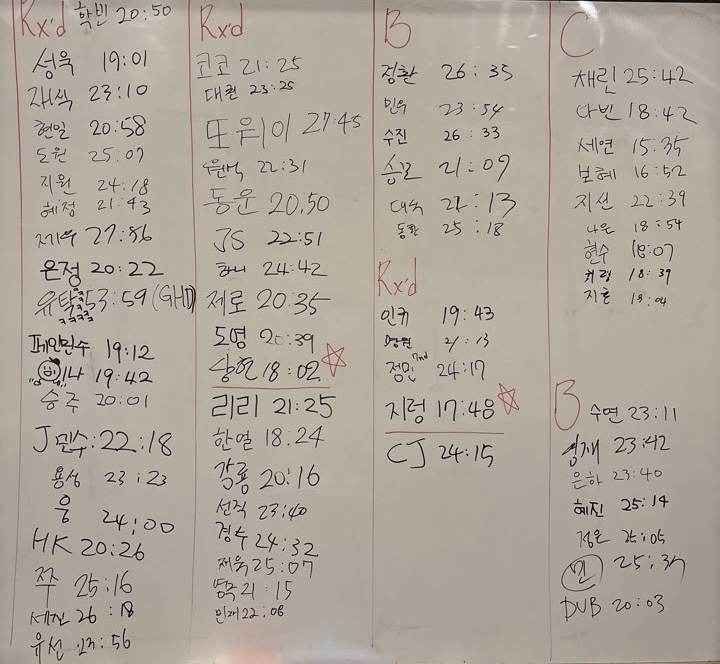 Rx'd 학빈 20:50
성욱 19:01
재식 23:10
현일 20:58
도원 25:07
지원 24:18
혜정 21:43
27:86
은정 20:22
유탁 53:59 (GHD)
페인민수 19:12
나 19:42
승주 20:01
J민수: 22:18
용성 23:23
웅 24:00
HK 20:26
쭈 25:16
세진 26:18
유선 23:56
Rx'd
코코 21:25
대원 23:25
또위이 27:45
22:31
동운 20:50
JS 22:51
하니 24:42
제로 20:35
도영 20:39
상현 18:02
리리 21:25
한얼 18:24
갈룡 20:16
선직 23:40
경수 24:32
재욱 25:07
명주 21:15
민재 22:08
B
정환 26:35
민우 23:54
수진 26:33
승길 21:09
대숙 22:13
동환 25:18
Rx'd
인규 19:43
21:13
정민 2nd 24:17
지렁 17:48
CJ 24:15
C
채린 25:42
다빈 18:42
세연 15:35
보혜 16:52
지선 22:39
나은 18:54
현수 18:07
18:39
지호 18:04
B
수연 23:11
23:42
은하 23:40
혜진 25:14
정은 25:05
민 25:37
DUB 20:03